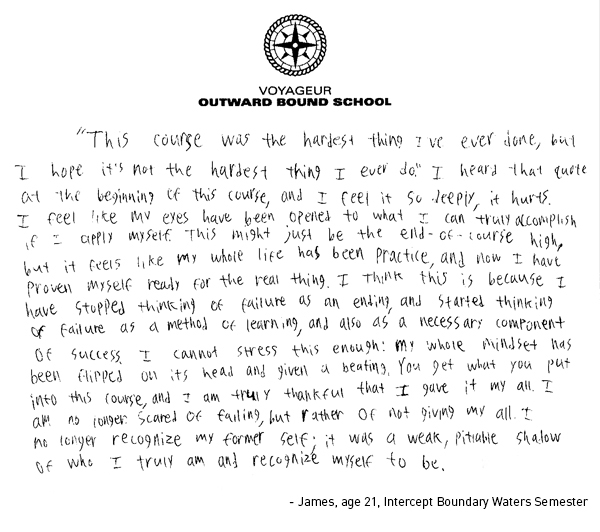 VOYAGEUR
OUTWARD BOUND SCHOOL
"This course was the hardest thing I've ever done, but
I hope it's not the hardest thing I ever do." I heard that quote
at the beginning of this course, and I feel it so deeply, it hurts.
I feel like my eyes have been opened to what I can truly accomplish
if I apply myself. This might just be the end-of-course high,
but it feels like my whole life has been practice, and now I have
proven myself ready for the real thing. I think this is because I
have stopped thinking of failure as an ending, and started thinking
of failure as a method of learning, and also as a necessary component
of success. I cannot stress this enough: my whole mindset has
been flipped on its head and given a beating. You get what you put
into this course, and I am truly thankful that I gave it my all. I
am no longer scared of failing, but rather of not giving my all. I
no longer recognize my former self; it was a weak, pitiable shadow
of who I truly am and recognize myself to be.
- James, age 21, Intercept Boundary Waters Semester